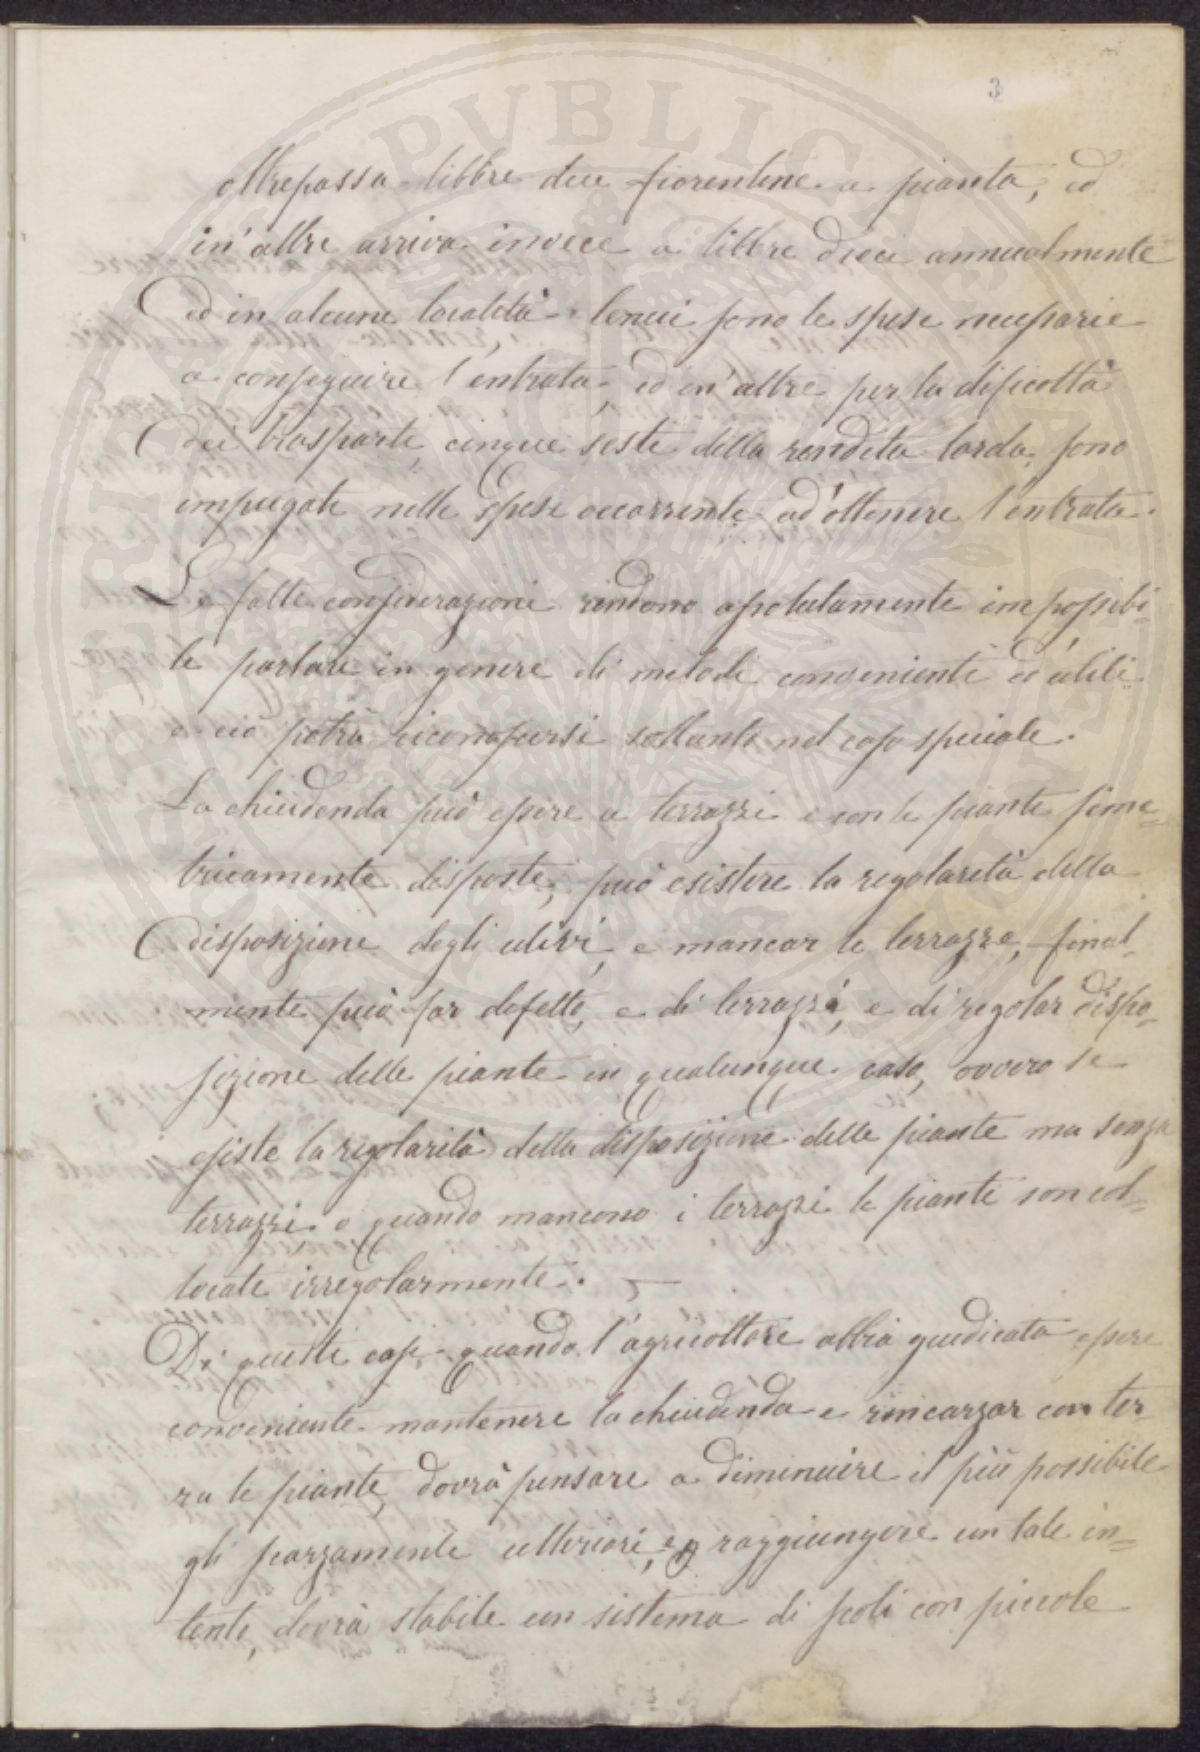 3
oltrepassa libbre due fiorentine a pianta, ed
in'altre arriva invece a libbre dieci annualmente
ed in alcune località tenui sono le spese necessarie
a conseguire l'entrata, ed in'altre per la dificoltà
dei trasporti, cinque sesti della rendita lorda, sono
impiegati nelle spese occorrenti ad'ottenere l'entrata.
Le fatte considerazioni rendono assolutamente impossibi-
le parlare in genere di metodi convenienti ed'utili
e ciò potrà riconoscersi soltanto nel caso speciale.
La chiudenda può essere a terrazzi e con le piante sime=
tricamente disposte, può esistere la regolarità della
disposizione degli ulivi, e mancar le terrazze, final-
mente può far difetto, e di terrazzi, e di regolar dispo-
sizione delle piante in qualunque caso, ovvero se
esiste la regolarità della disposizione delle piante ma senza
terrazzi, o quando mancono i terrazzi le piante son col-
locate irregolarmente. —
Di questi casi, quando l'agricoltore abbia giudicato essere
conveniente mantenere la chiudenda e rincarzar con ter-
ra le piante, dovrà pensare a diminuire il più possibile
gli scarzamenti ulteriori, e raggiungere un tale in=
tento, dovrà stabile un sistema di scoli con piccole
PUBLICAE